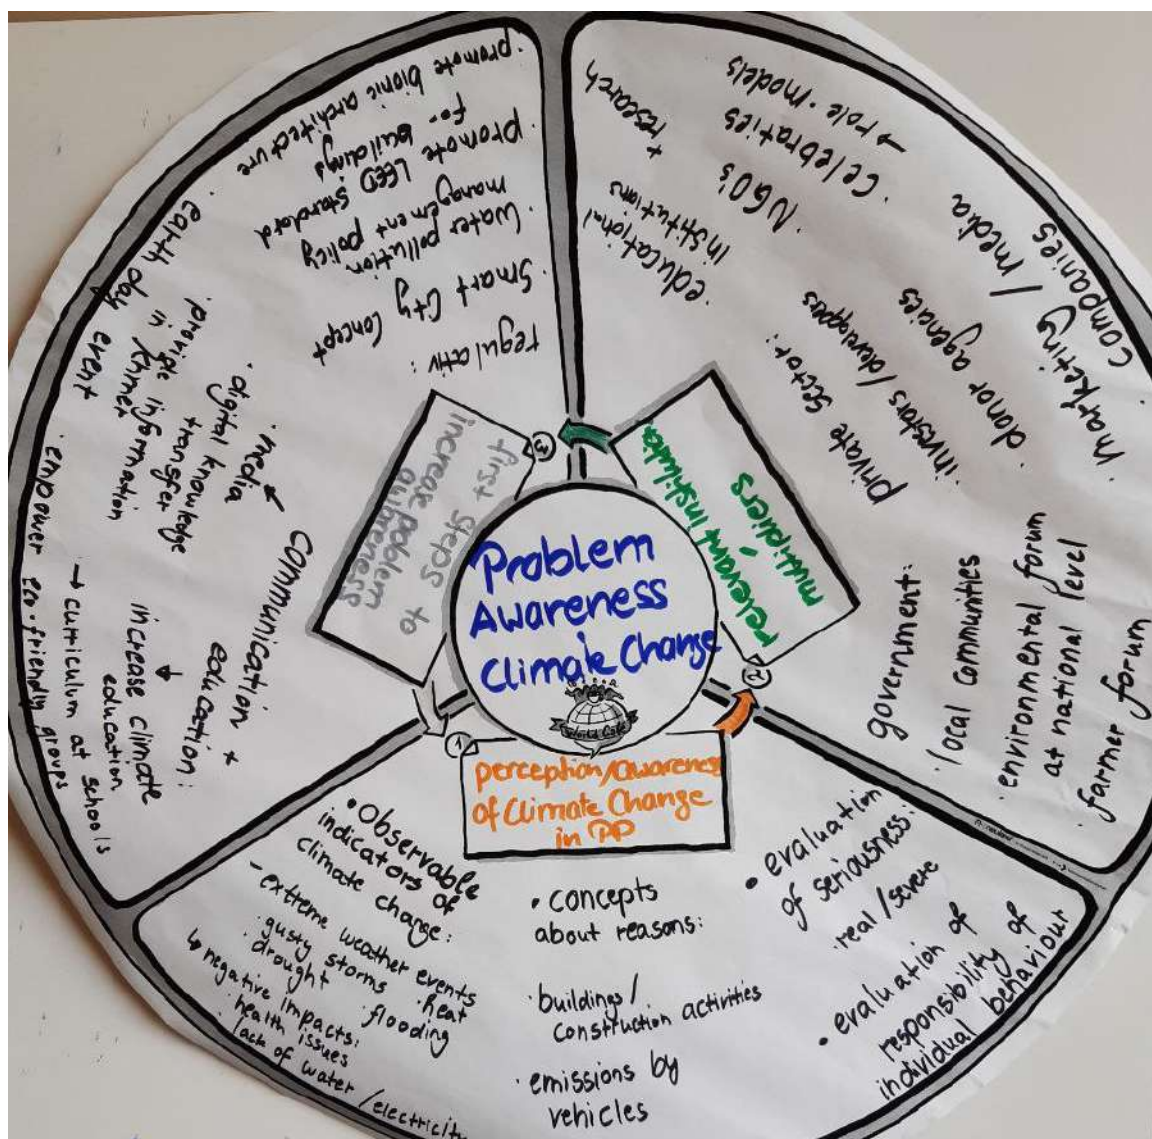 Problem
Awareness
Climate Change
World Café
1
perception/awareness
of Climate Change
in PP
• Observable
indicators of
climate change:
- extreme weather events
· gusty storms · heat
· drought · flooding
↳ negative impacts:
· health issues
· lack of water / electricity
• concepts
about reasons:
· buildings /
construction activities
· emissions by
vehicles
• evaluation
of seriousness:
real / severe
• evaluation of
responsibility of
individual behaviour
2
relevant institution
multipliers
government:
· local communities
· environmental forum
at national level
· farmer forum
private sector:
· investors / developpers
· donor agencies
· marketing / media
companies
· educational
institutions
+ research
· NGO's
· Celebraties
→ role-models
3
first steps to
increase poblem
awareness
regulativ:
· Smart City Concept
· Water pollution
management policy
· promote LEED standard
for buildings
· promote bionic architecture
communication +
education:
→ media
· digital knowledge
transfer
· provide information
in khmer
· earth day event
→ increase climate
education
→ curriculum at schools
· empower eco-friendly groups